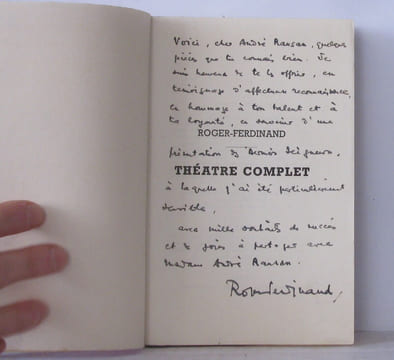 Voici, cher André Ransan, quelques
pièces que tu connais bien. Je
suis heureux de te les offrir, en
témoignage d'affectueuse reconnaissance,
en hommage à ton talent et à
ta loyauté, en souvenir d'une
ROGER-FERDINAND
présentation des Derniers Seigneurs,
THÉATRE COMPLET
à laquelle j'ai été particulièrement
sensible,
avec mille souhaits de succès
et de joies à partager avec
Madame André Ransan.
Roger Ferdinand